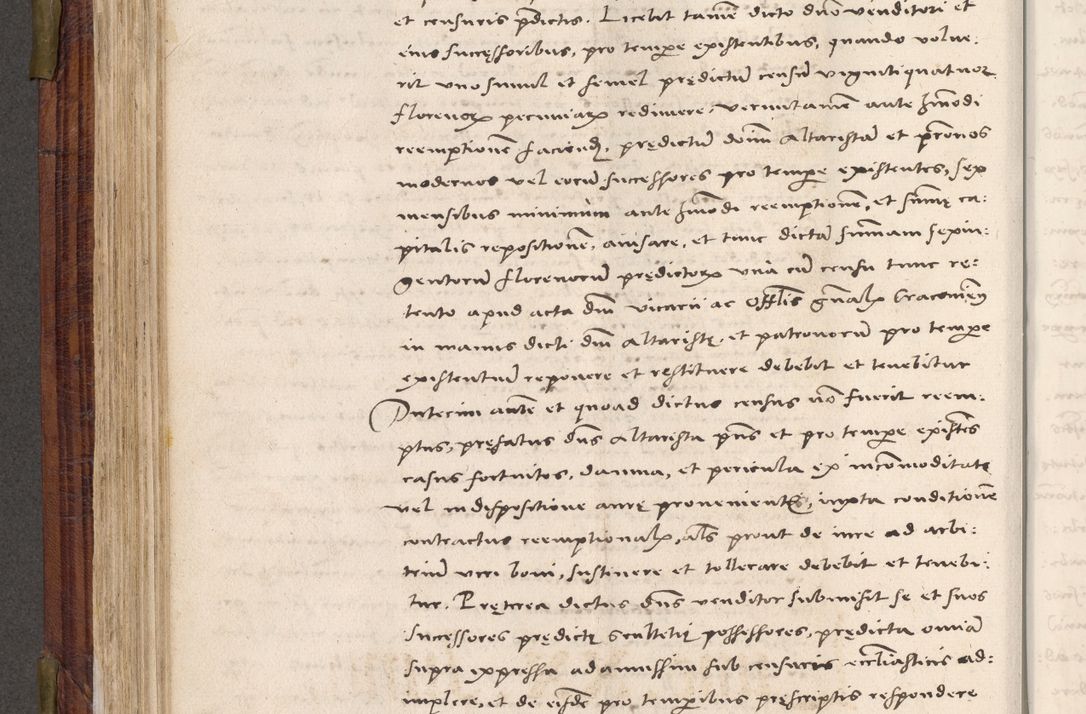 et censuris p̄dictis. Licebit tamē dicto dn̄o venditori et
eius successoribus, pro tempe existentibus, quando volue:
rit uno simul et semel prędictū censū viginti quatuor
florenoꝝ pecuniaꝝ redimere, verumtamē ante hm̄odi
reemptionē faciendā, prędictū dōm̄ altaristā et p̄ronos
modernos vel eorū successores pro tempe existentes, sex
mensibus minimum ante hm̄odi reemptionē, et sum̄ę ca:
pitalis repositionē, auisare, et tunc dictā sum̄am sexin:
gentorū florenorū prędictorꝝ una cū censu tunc re:
tento apud acta dn̄i vicarii ac offl̄is gn̄alꝭ Cracouien̄
in manus dicti dn̄i altaristę et patronorū pro tempe
existentiū reponere et restituere debebit et tenebitur
Interim autē et quoad dictus census nō fuerit reem:
ptus, pręfatus dn̄s altarista pn̄s et pro tempe existēs
casus fortuitos, damna, et pericula ex incōmoditate
vel indispositione aurę prouenientē, iuxta conditionē
contractus reemptionalꝭ, als prout de iure ad arbi:
triū viri boni, sustinere et tollerare debebit et tenebi:
tur. Pręterea dictus dn̄s venditor submisit se et suos
successores prędictę scultetię possessores, prędicta omia
supra expressa adamussim sub censuris ecclīasticis ad:
implere, et de eisdē pro temporibus pręscriptis respondere